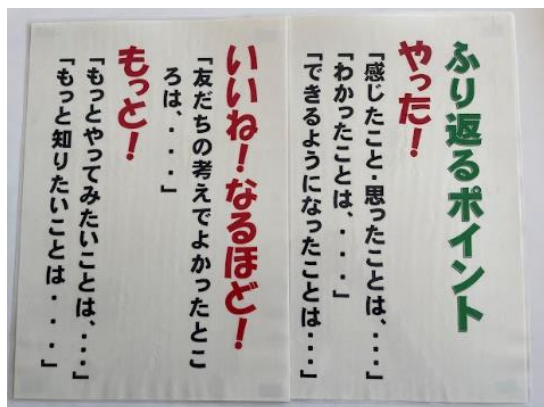 ふり返るポイント
やった！
「感じたこと・思ったことは、・・・」
「わかったことは、・・・」
「できるようになったことは・・・」
いいね！なるほど！
「友だちの考えでよかったとこ
ろは、・・・」
もっと！
「もっとやってみたいことは、・・・」
「もっと知りたいことは・・・」